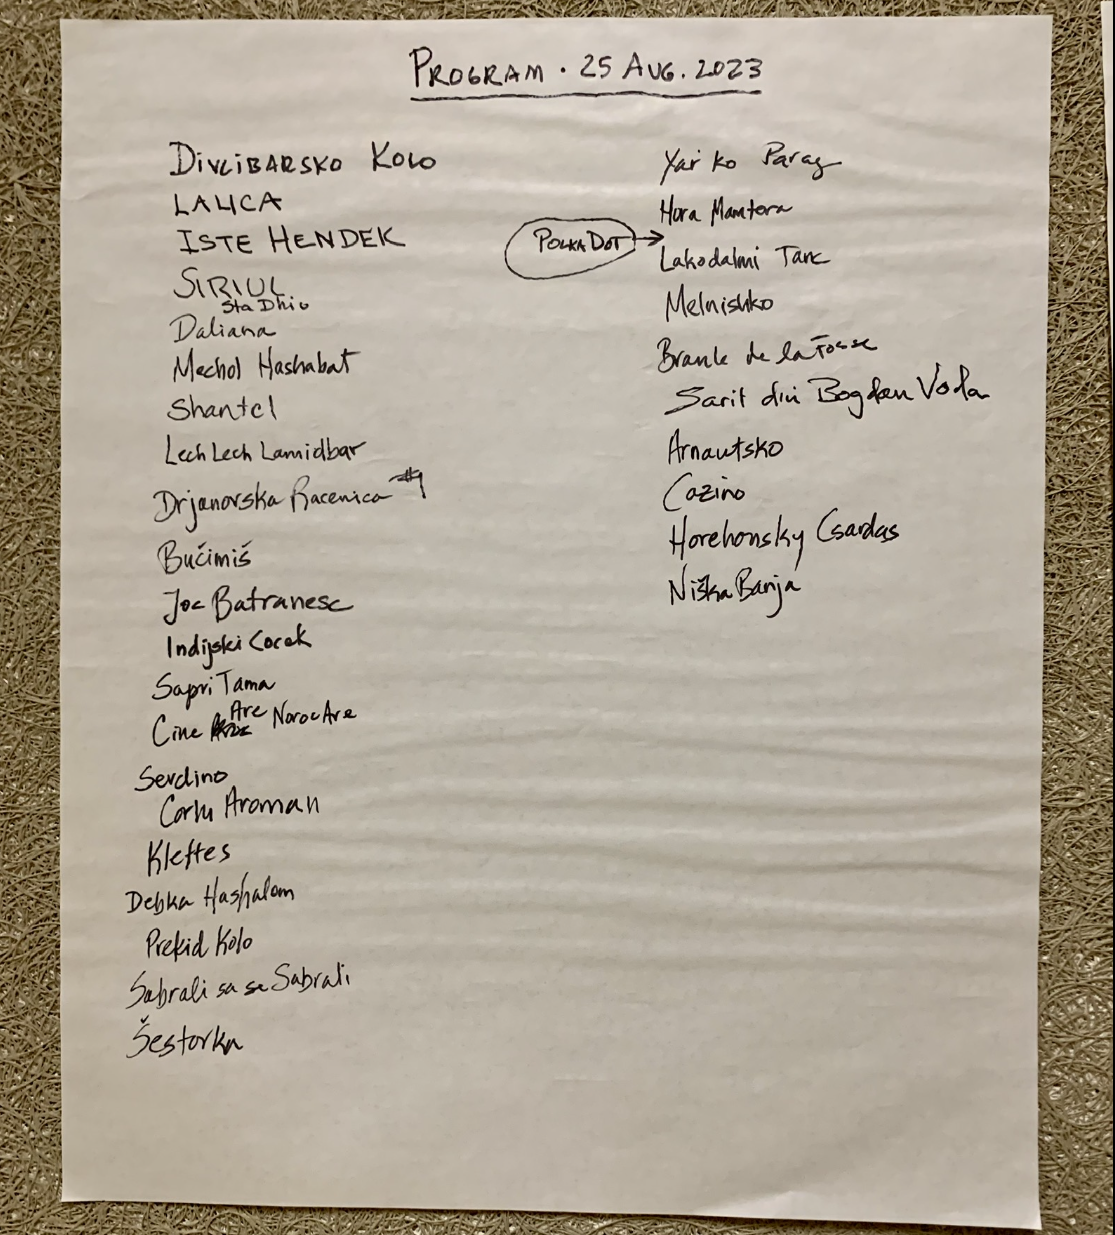 PROGRAM · 25 AUG. 2023
DIVLIBARSKO KOLO
LAUCA
ISTE HENDEK
SIRIUL
Sta Dhio
Daliana
Mechol Hashabat
Shantel
Lech Lech Lamidbar
Drjanovska Racenica #1
Bučimiš
Joc Batranesc
Indijski Cocek
Sapri Tama
Cine Are Noroc Are
Sevdino
Corlu Aroman
Kleftes
Debka Hashalom
Prekid Kolo
Sabrali sa se Sabrali
Šestorka
Yar ko Parag
Hora Mamtera
POLKA DOT →
Lakodalmi Tanc
Melnishko
Branle de la Fosse
Sarit din Bogdan Voda
Arnautsko
Cazino
Horehonsky Csardas
Niška Banja